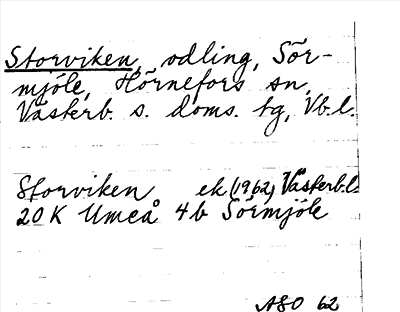 Storviken, odling, Sör-
mjöle, Hörnefors sn,
Västerb. s. doms. tg, Vb.l.
Storviken ek (1962) Västerb.l.
20 K Umeå 4b Sörmjöle
ASO 62